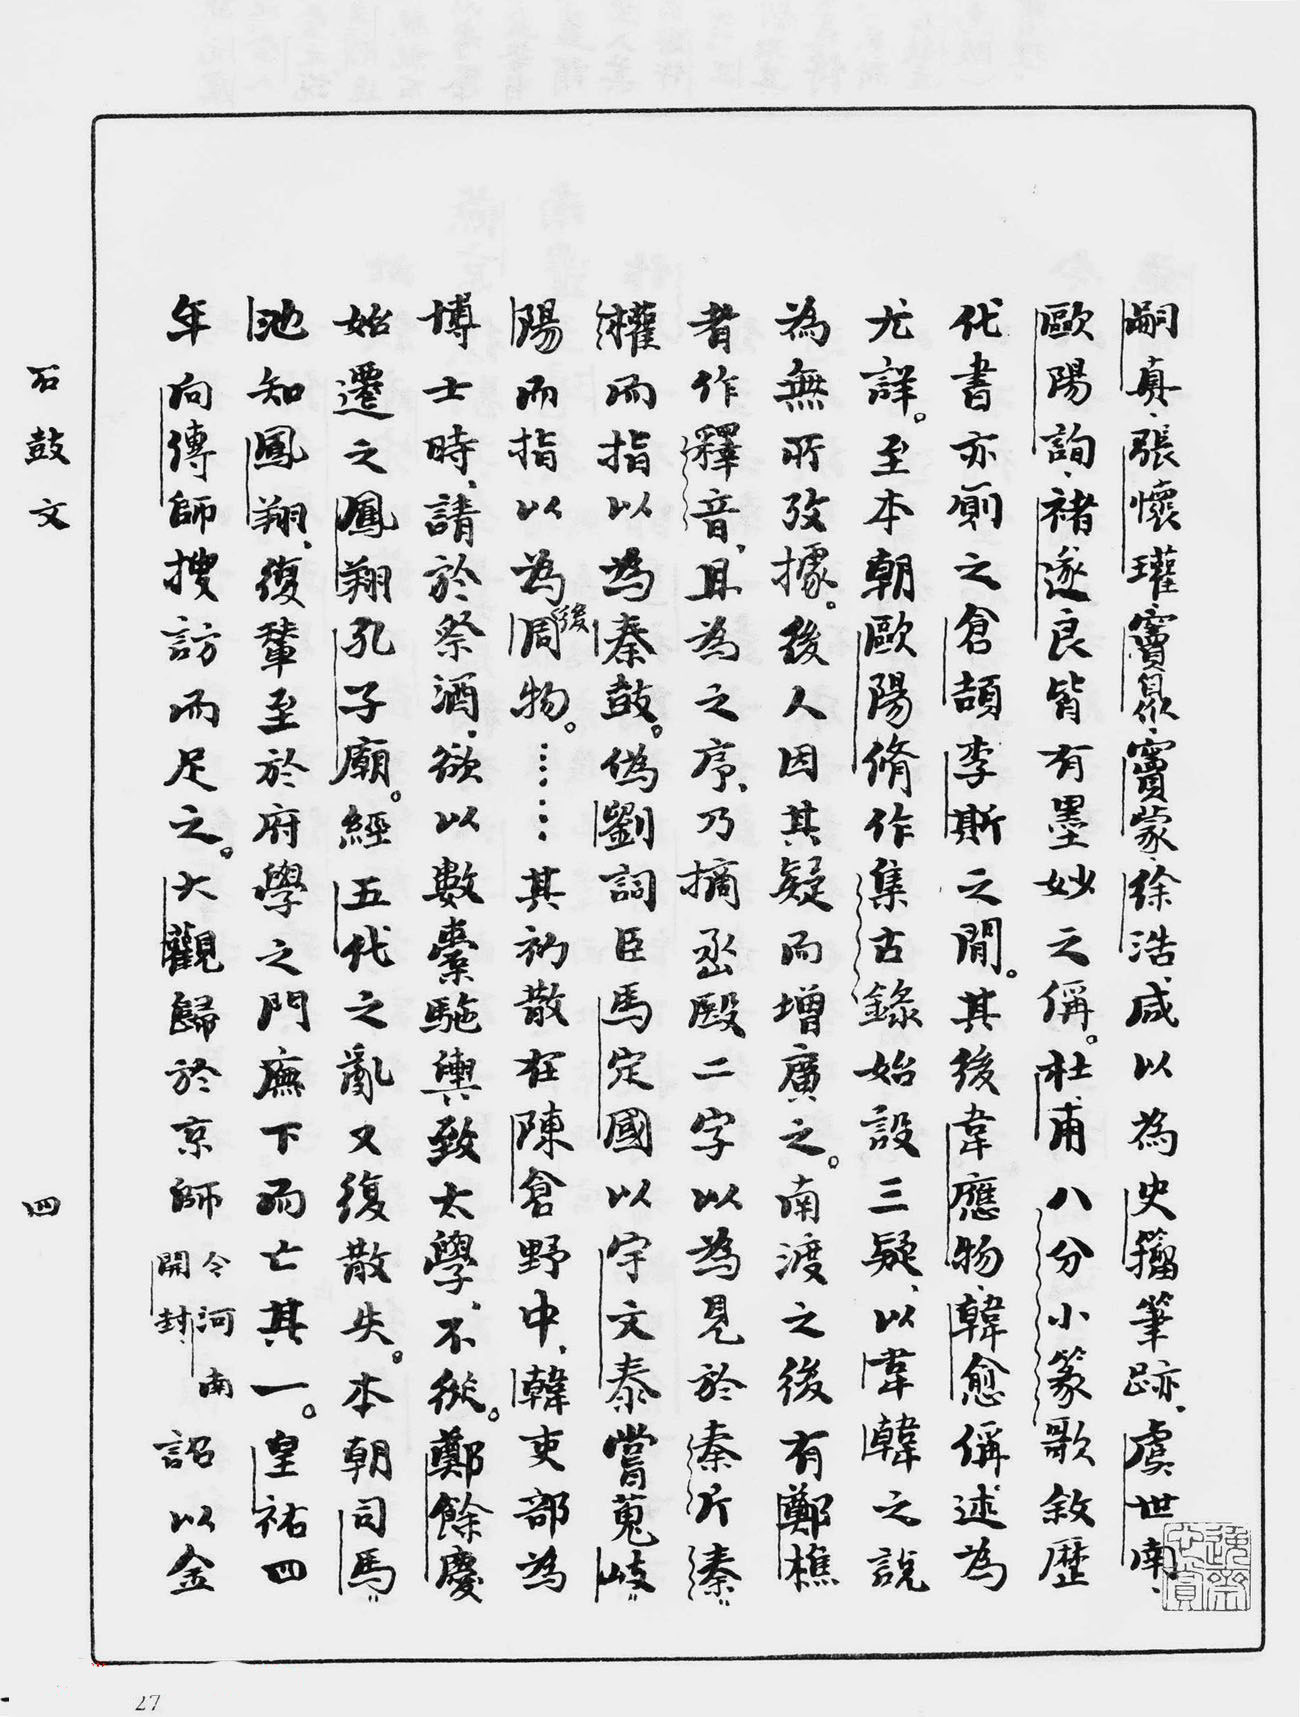 嗣真、張懷瓘、竇臮、竇蒙、徐浩、咸以為史籀筆跡、虞世南、
歐陽詢、褚遂良皆有墨妙之稱。杜甫八分小篆歌敘歷
代書亦廁之倉頡李斯之間。其後韋應物、韓愈稱述為
尤詳。至本朝歐陽脩作集古錄始設三疑、以韋韓之說
為無所攷據。後人因其疑而增廣之。南渡之後有鄭樵
者作釋音、且為之序、乃摘丞殹二字以為見於秦斤秦
權而指以為秦鼓。偽劉詞臣馬定國以宇文泰嘗蒐岐
陽而指以為後周物。……其初散在陳倉野中、韓吏部為
博士時、請於祭酒、欲以數橐駞輿致太學、不從。鄭餘慶
始遷之鳳翔孔子廟。經五代之亂又復散失。本朝司馬
池知鳳翔、復輦至於府學之門廡下而亡其一。皇祐四
年向傳師搜訪而足之。大觀歸於京師今河南開封詔以金
石鼓文
四
27